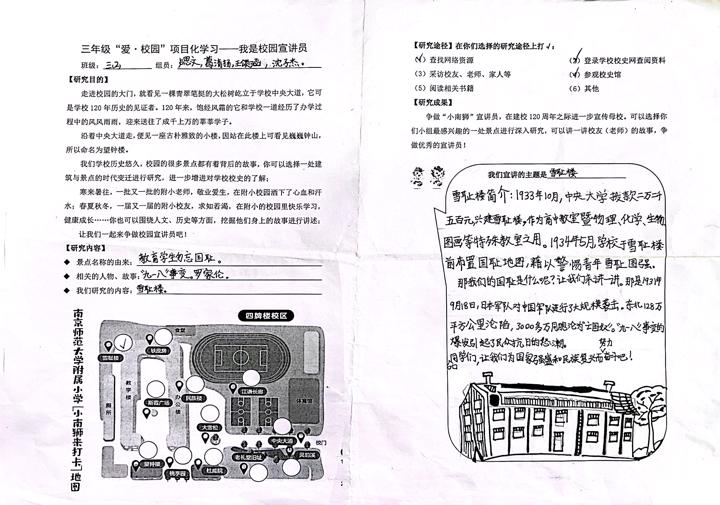 三年级“爱·校园”项目化学习——我是校园宣讲员
班级：三(2) 组员：
【研究目的】
走进校园的大门，就看见一棵青翠笔挺的大松树屹立于学校中央大道，它可
是学校 120 年历史的见证者。120 年来，饱经风霜的它和学校一道经历了办学过
程中的风风雨雨，迎来送往了成千上万的莘莘学子。
沿着中央大道走，便见一座古朴雅致的小楼，因站在此楼上可看见巍巍钟山，
所以命名为望钟楼。
我们学校历史悠久，校园的很多景点都有着背后的故事，你可以选择一处建
筑与景点的时代变迁进行研究，进一步增进对学校校史的了解；
寒来暑往，一批又一批的附小老师，敬业爱生，在附小校园洒下了心血和汗
水；春夏秋冬，一届又一届的附小校友，求知若渴，在附小的校园里快乐学习，
健康成长……你也可以围绕人文、历史等方面，挖掘他们身上的故事进行讲述；
让我们一起来争做校园宣讲员吧！
【研究内容】
◆ 景点名称的由来：教育学生勿忘国耻。
◆ 相关的人物、故事：“九一八”事变。罗家伦。
◆ 我们研究的内容：雪耻楼。
南京师范大学附属小学“小南狮来打卡”地图
四牌楼校区
食堂
雪耻楼
教学楼
办公楼
厕所
斯霞广场
民族楼
江谦长廊
体育馆
大雪松
中央大道
校门
老礼堂旧址
望钟楼
桃李园
杜威院
【研究途径】在你们选择的研究途径上打√：
(√) 查找网络资源
(√) 登录学校校史网查阅资料
(3) 采访校友、老师、家人等
(√) 参观校史馆
(5) 阅读相关书籍
(6) 其他
【研究成果】
争做“小南狮”宣讲员，在建校 120 周年之际进一步宣传母校。可以选择你
们小组最感兴趣的一处景点进行深入研究，可以讲一讲校友（老师）的故事，争
做优秀的宣讲员！
我们宣讲的主题是 雪耻楼
雪耻楼简介：1933年10月，中央大学拨款二万二千
五百元，兴建雪耻楼，作为高中教室暨物理、化学、生物
图画等特殊教室之用。1934年5月，学校于雪耻楼
首布置国耻地图，藉以警惕青年雪耻图强。
那我们的国耻是什么呢？让我们来讲一讲。那是1931年
9月18日，日本军队对中国军队进行了大规模袭击。东北128万
平方公里沦陷，3000多万同胞沦为亡国奴。“九一八”事变的
爆发引起了民众抗日的怒潮。
同学们，让我们为国家强盛和民族复兴而努力吧！